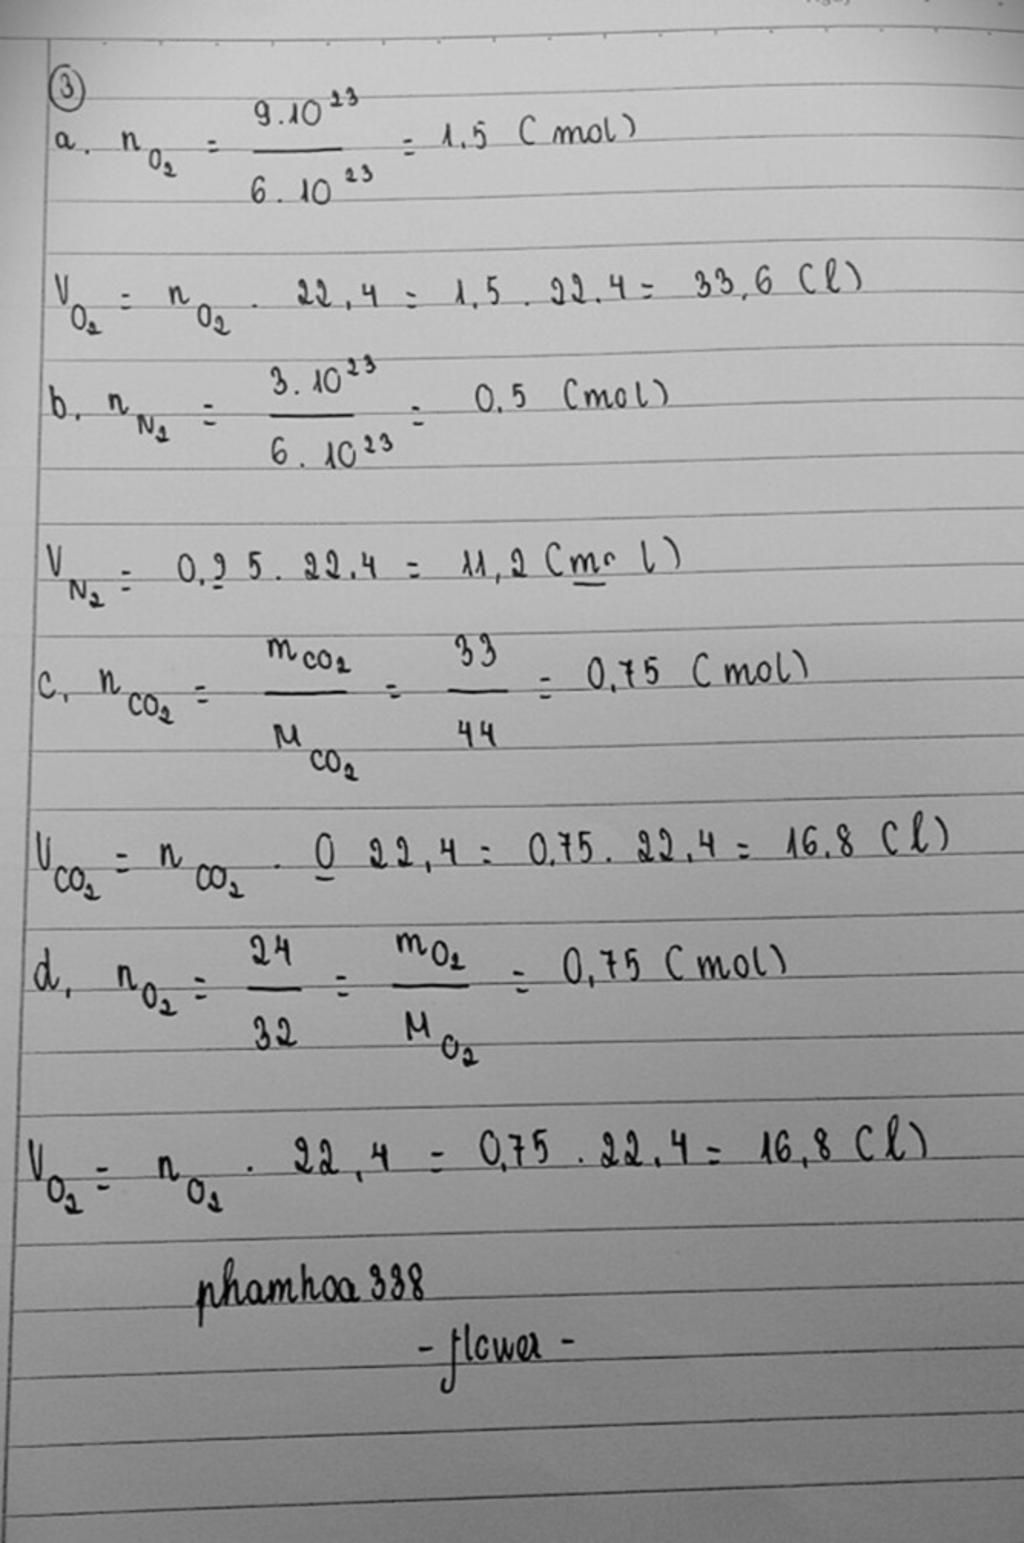 ③
a. n O₂ = 9.10²³ / 6.10²³ = 1,5 (mol)
V O₂ = n O₂ . 22,4 = 1,5 . 22.4 = 33,6 (l)
b. n N₂ = 3.10²³ / 6.10²³ = 0,5 (mol)
V N₂ = 0,25 . 22.4 = 11,2 (mol)
c, n CO₂ = m CO₂ / M CO₂ = 33 / 44 = 0,75 (mol)
V CO₂ = n CO₂ . 0 22,4 = 0,75 . 22,4 = 16,8 (l)
d, n O₂ = 24 / 32 = m O₂ / M O₂ = 0,75 (mol)
V O₂ = n O₂ . 22,4 = 0,75 . 22,4 = 16,8 (l)
phamhoa338
- flower -